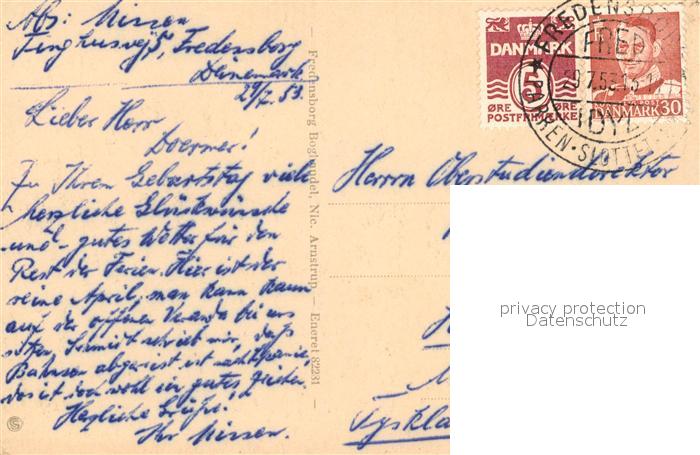 Abs: Nissen
Tinghusvej 5, Fredensborg
Dänemark
29/7. 53.
Lieber Herr
Doermer!
Zu Ihrem Geburtstag viele
herzliche Glückwünsche
und gutes Wetter für den
Rest der Ferien. Hier ist der
reine April, man kann kaum
auf der offenen Veranda bei uns
sitzen. Schmidt schrieb mir, daß
Bahnsen abgereist ist
das ist doch wohl ein gutes Zeichen.
Herzliche Grüße!
Ihr Nissen.
Fredensborg Boghandel, Nic. Arnstrup — Eneret 82231
DANMARK
5
ØRE ØRE
POSTFRIMÆRKE
DANMARK 30
FREDENSBORG
FRED
IDYL
PARKEN · SLOTTET
Herrn Oberstudiendirektor
Tyskla
privacy protection
Datenschutz